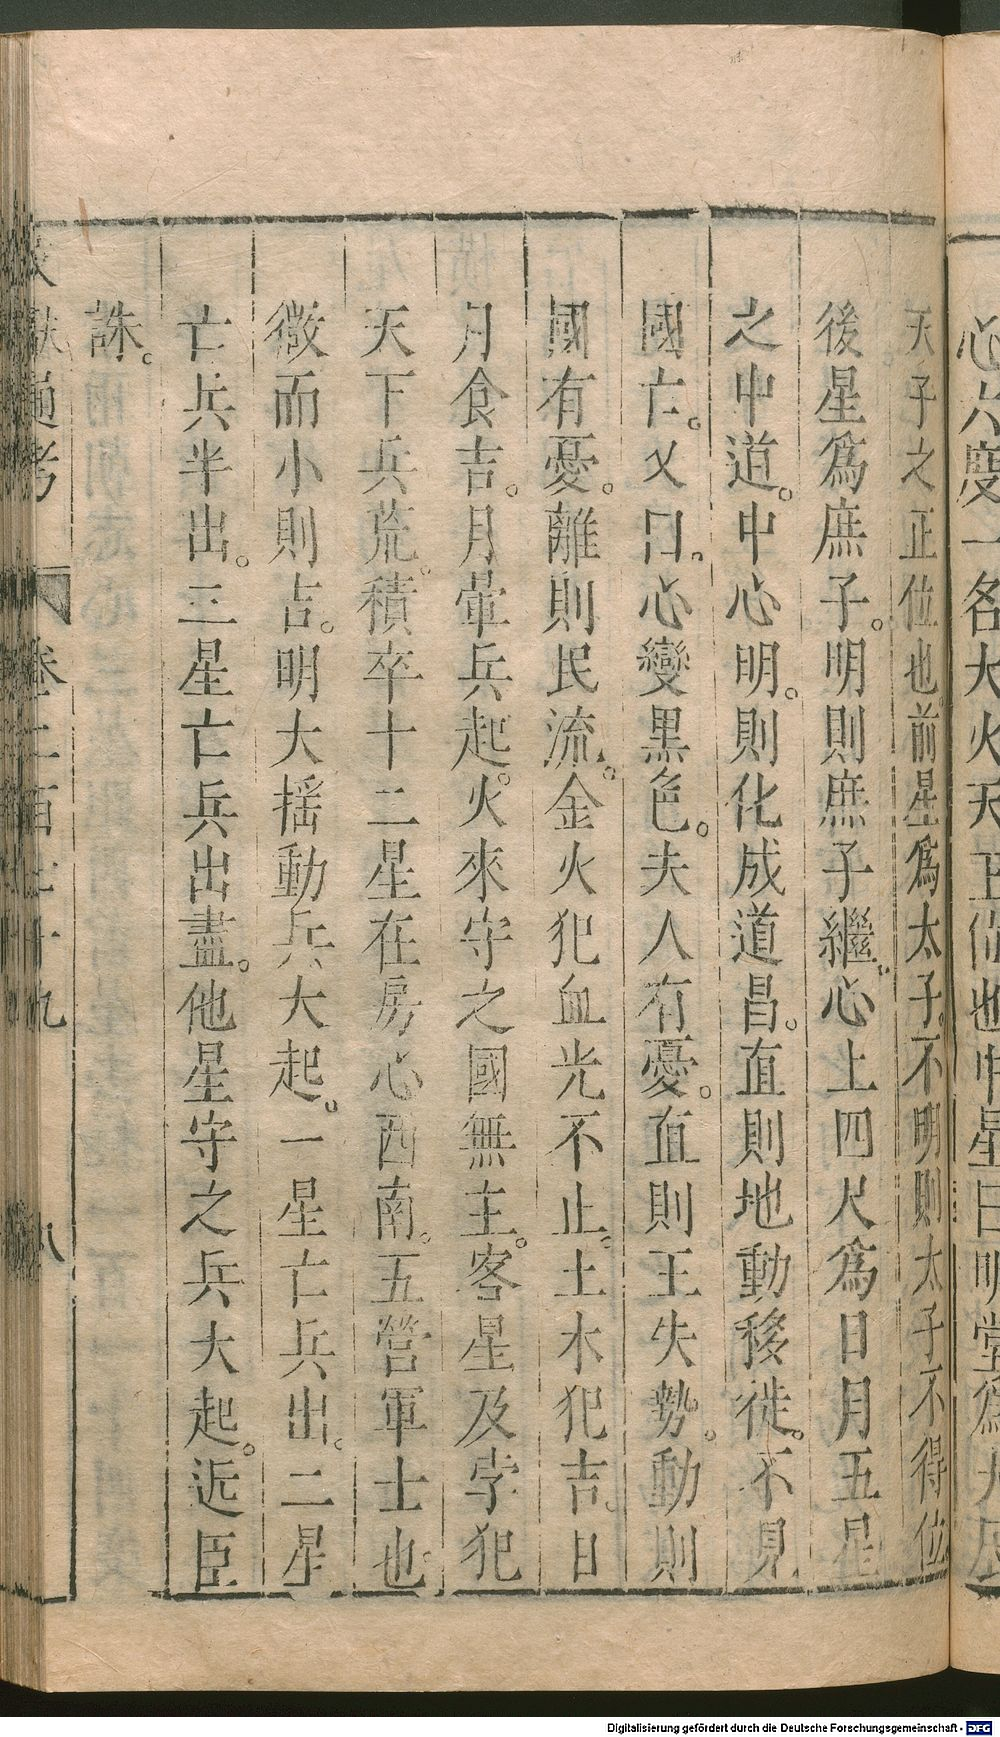 心六度一名大火天王位也中星曰明堂爲大辰
天子之正位也前星爲太子不明則太子不得位
後星爲庶子。明則庶子繼。心上四尺爲日月五星
之中道。中心明。則化成道昌。直則地動移徙。不見
國亡。又曰。心變黑色。夫人有憂。直則王失勢。動則
國有憂。離則民流。金火犯血光不止。土木犯吉。日
月食吉。月暈兵起。火來守之國無主。客星及孛犯
天下兵荒。積卒十二星在房心西南。五營軍士也
微而小則吉。明大揺動兵大起。一星亡兵出。二星
亡兵半出。三星亡兵出盡。他星守之兵大起。近臣
誅。
文獻通考 卷二百七十九 八
Digitalisierung gefördert durch die Deutsche Forschungsgemeinschaft - DFG